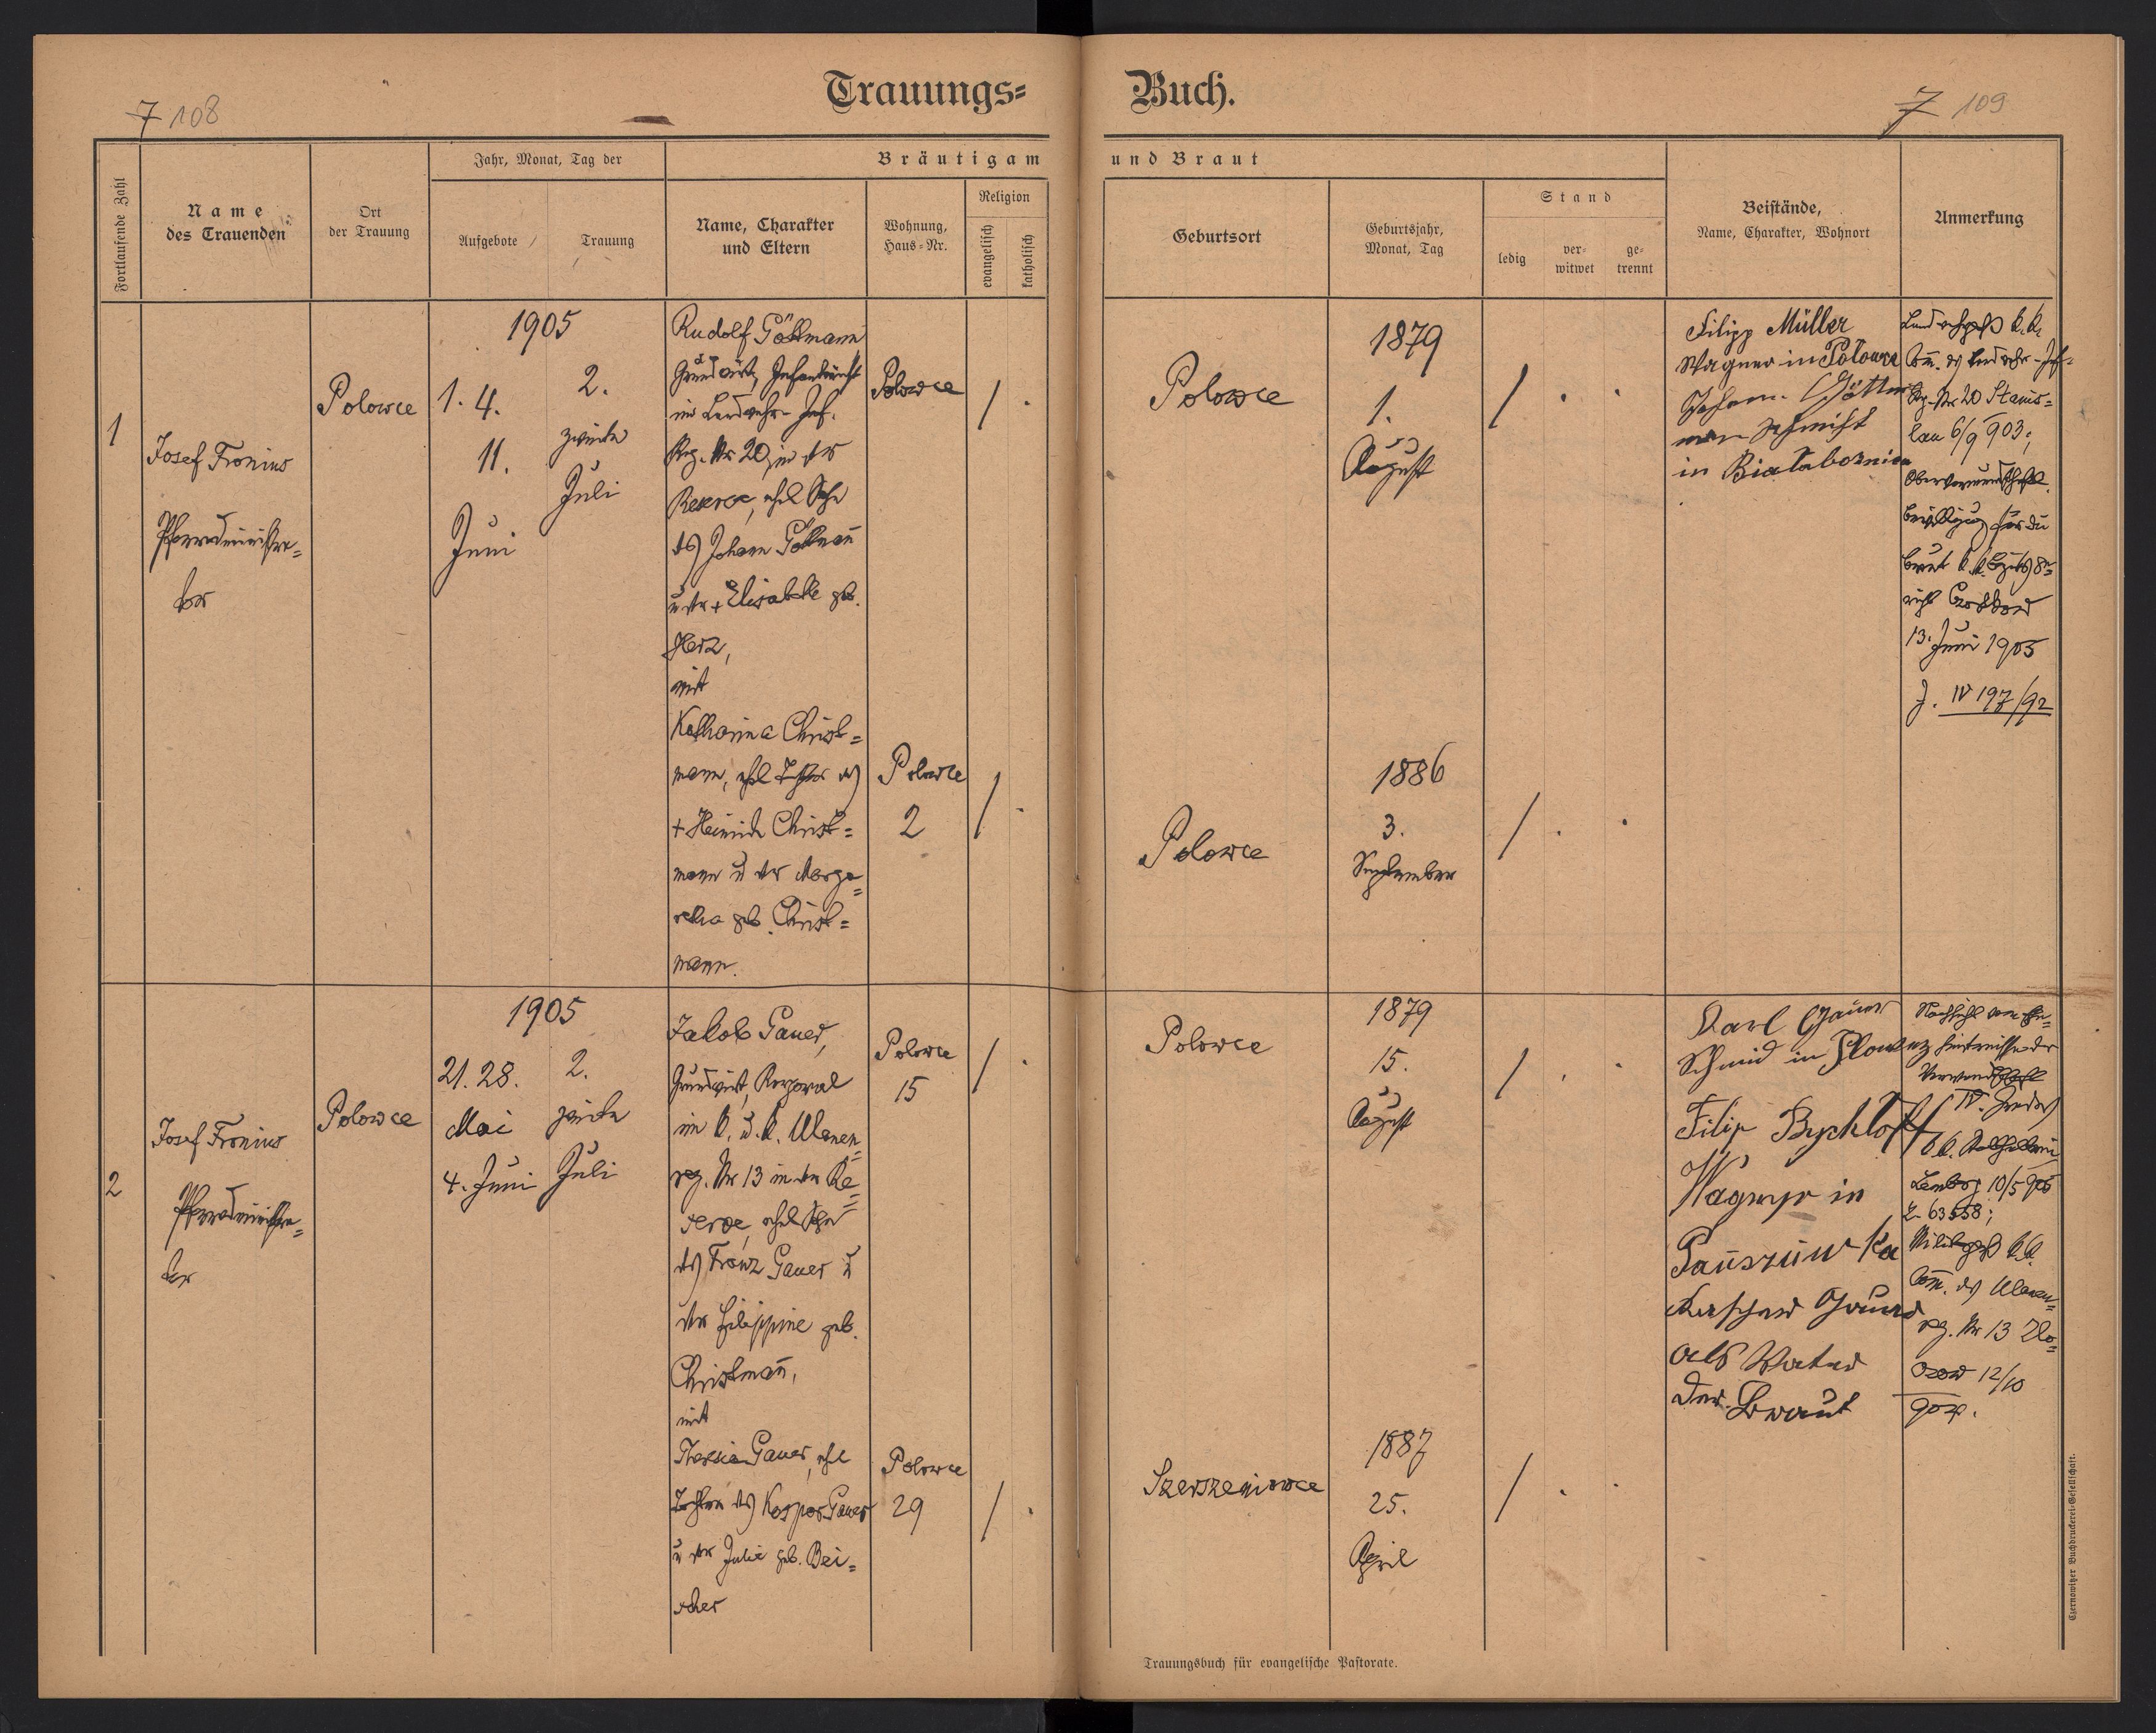 Trauungs= Buch.
7 108
7 109
Fortlaufende Zahl
Name
des Trauenden
Ort
der Trauung
Jahr, Monat, Tag der
Aufgebote
Trauung
Bräutigam und Braut
Name, Charakter
und Eltern
Wohnung,
Haus=Nr.
Religion
evangelisch
katholisch
Geburtsort
Geburtsjahr,
Monat, Tag
Stand
ledig
ver-
witwet
ge-
trennt
Beistände,
Name, Charakter, Wohnort
Anmerkung
1
Josef Fronius
Pfarradministra=
tor
Polowce
1905
1. 4.
11.
Juni
2.
zweite
Juli
Rudolf Göttmann
Grundwirt, Infanterist
im Landwehr-Inf.
Reg. Nr 20, in der
Reserve, ehel Sohn
des Johann Göttmañ
u der + Elisabethe geb.
Herz,
mit
Katharina Christ=
mann, ehel Tochter des
+ Heinrich Christ=
mann u der Marga=
retha geb. Christ=
mann.
Polowce
Polowce
2
/ .
/ .
Polowce
1879
1.
August
/ . .
Polowce
1886
3.
September
/ . .
Filipp Müller
Wagner in Polowce
Johann Göttm
man Schmist
in Bialaboznica
Landwehrpass k. k.
Com. des Landwehr-Inf=
Rg. Nr 20 Stanis=
lau 6/9 903;
Obervormundschaftl.
Bewilligung für die
Braut k. k. Bezirks
13. Juni 1905
IV 197/92
2
Josef Fronius
Pfarradministra=
tor
Polowce
1905
21. 28.
Mai
4. Juni
2.
zweite
Juli
Jakob Gauer,
Grundwirt, Korporal
im k. u. k. Ulanen=
reg. Nr 13 in der Re=
serve, ehel Sohn
des Franz Gauer u
der Filippine geb.
Christmañ,
mit
Theresia Gauer, ehel
Tochter des Kaspar Gauer
u der Julie geb. Bei=
scher
Polowce
15
Polowce
29
/ .
/ .
Polowce
1879
15.
August
/ . .
Szerszeniowce
1887
25.
April
/ . .
Karl Gauer
Schmid in
Filip
Wagner in
Pauszuwka
Gauer
als Vater
der Braut
Nachsicht vom Ehe=
hindernisse der
Verwandtschaft
k.k. Statthalterei
Lemberg 10/5 905
Z. 63558;
k. k.
Com. des Ulanen=
reg. Nr 13 Zlo=
czow 12/10
Trauungsbuch für evangelische Pastorate.
Czernowitzer Buchdruckerei-Gesellschaft.